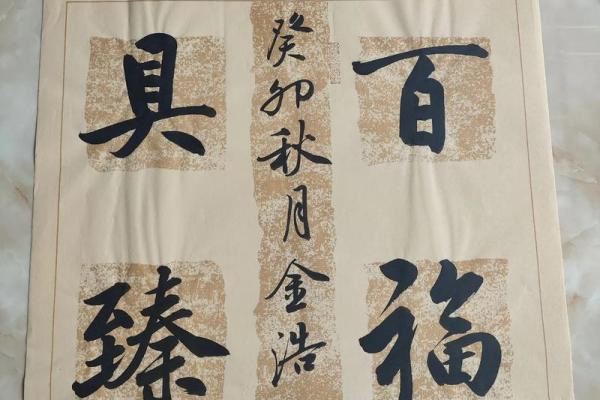 百福
具臻
癸卯秋月金浩